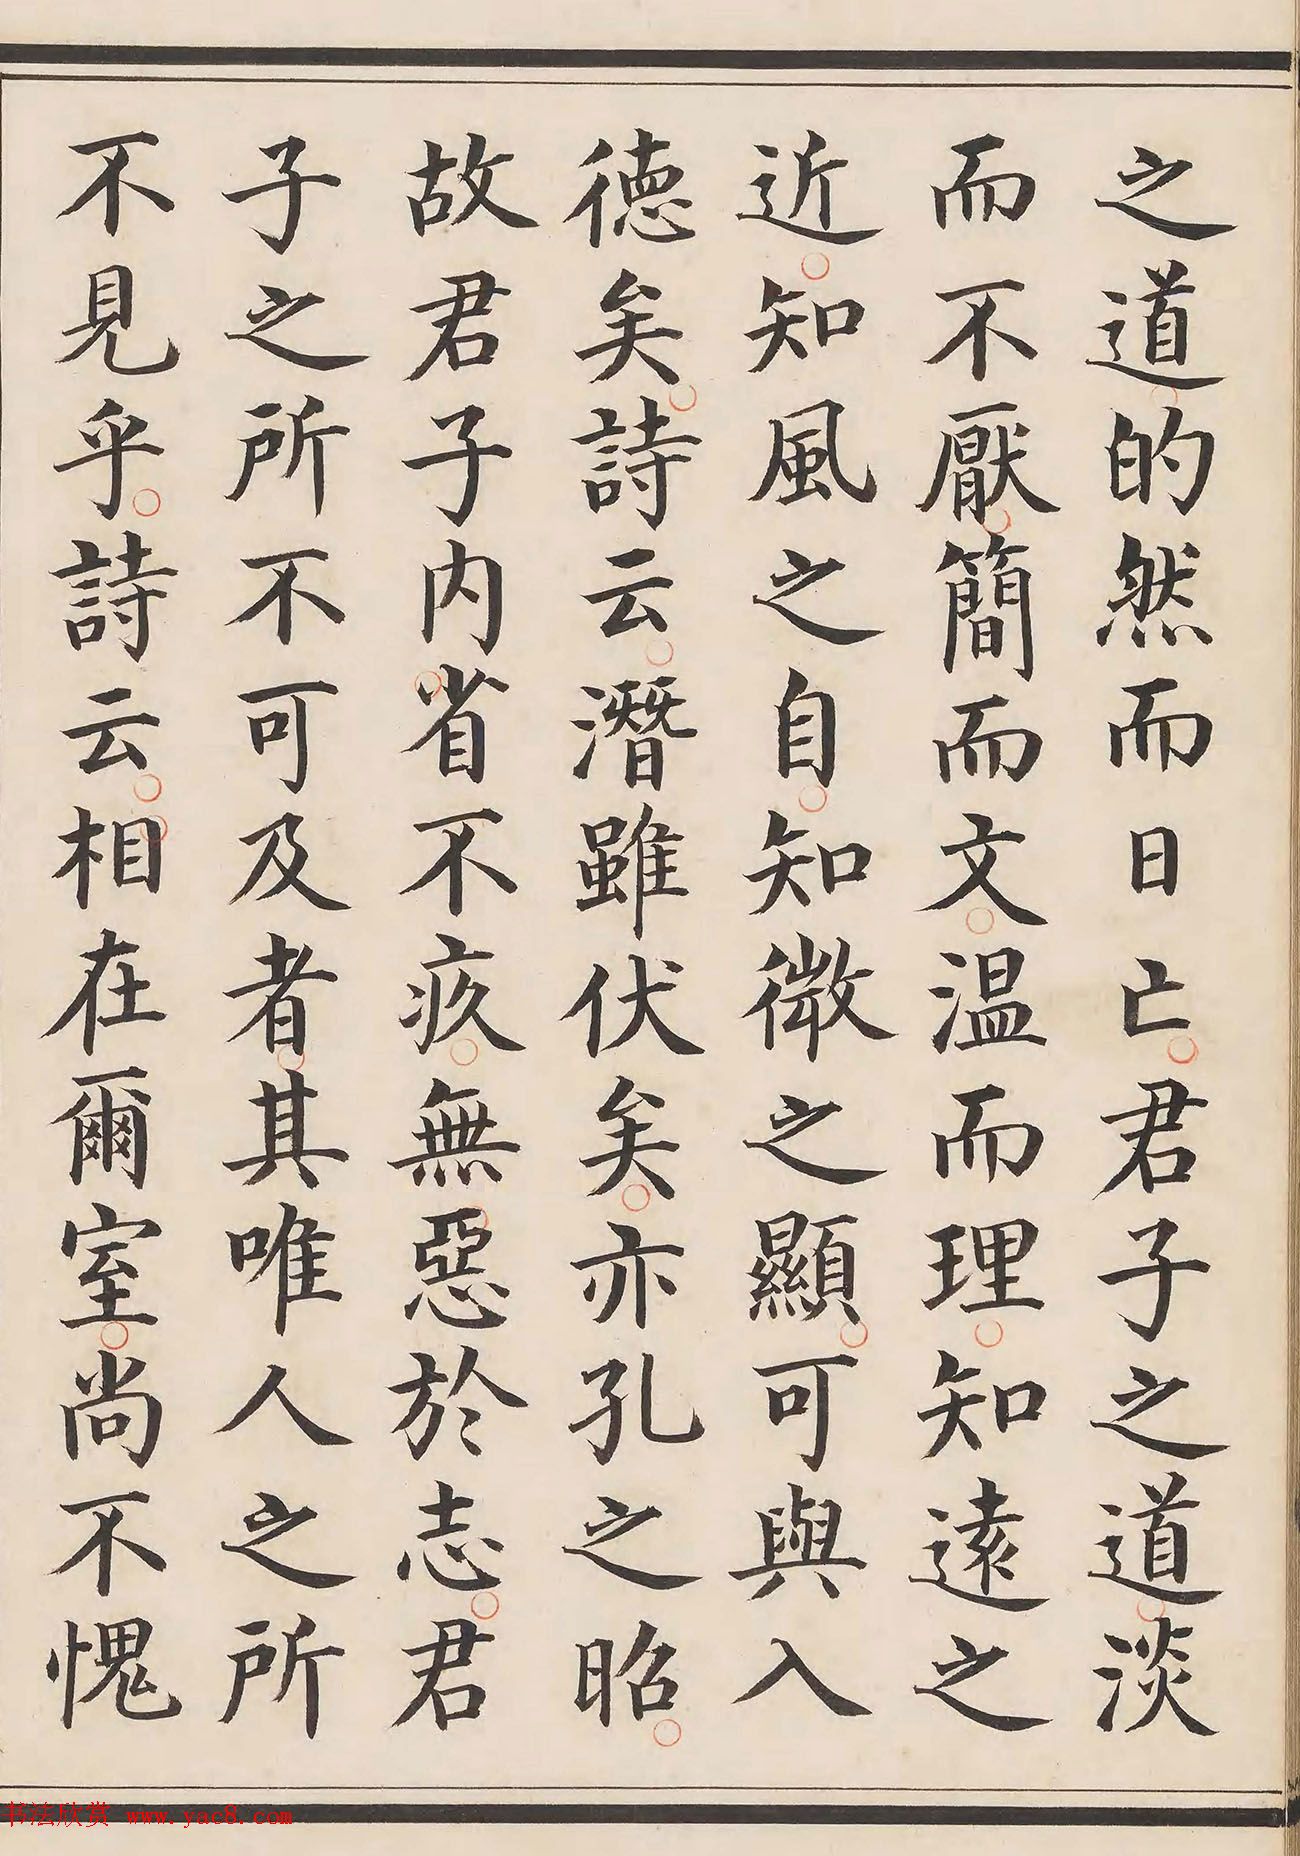 之道的然而日亡君子之道淡
而不厭簡而文温而理知遠之
近知風之自知微之顯可與入
德矣詩云潛雖伏矣亦孔之昭
故君子内省不疚無惡於志君
子之所不可及者其唯人之所
不見乎詩云相在爾室尚不愧
书法欣赏 www.yac8.com